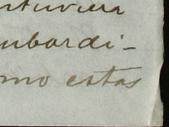 ntuviera
mbardi-
mo estas